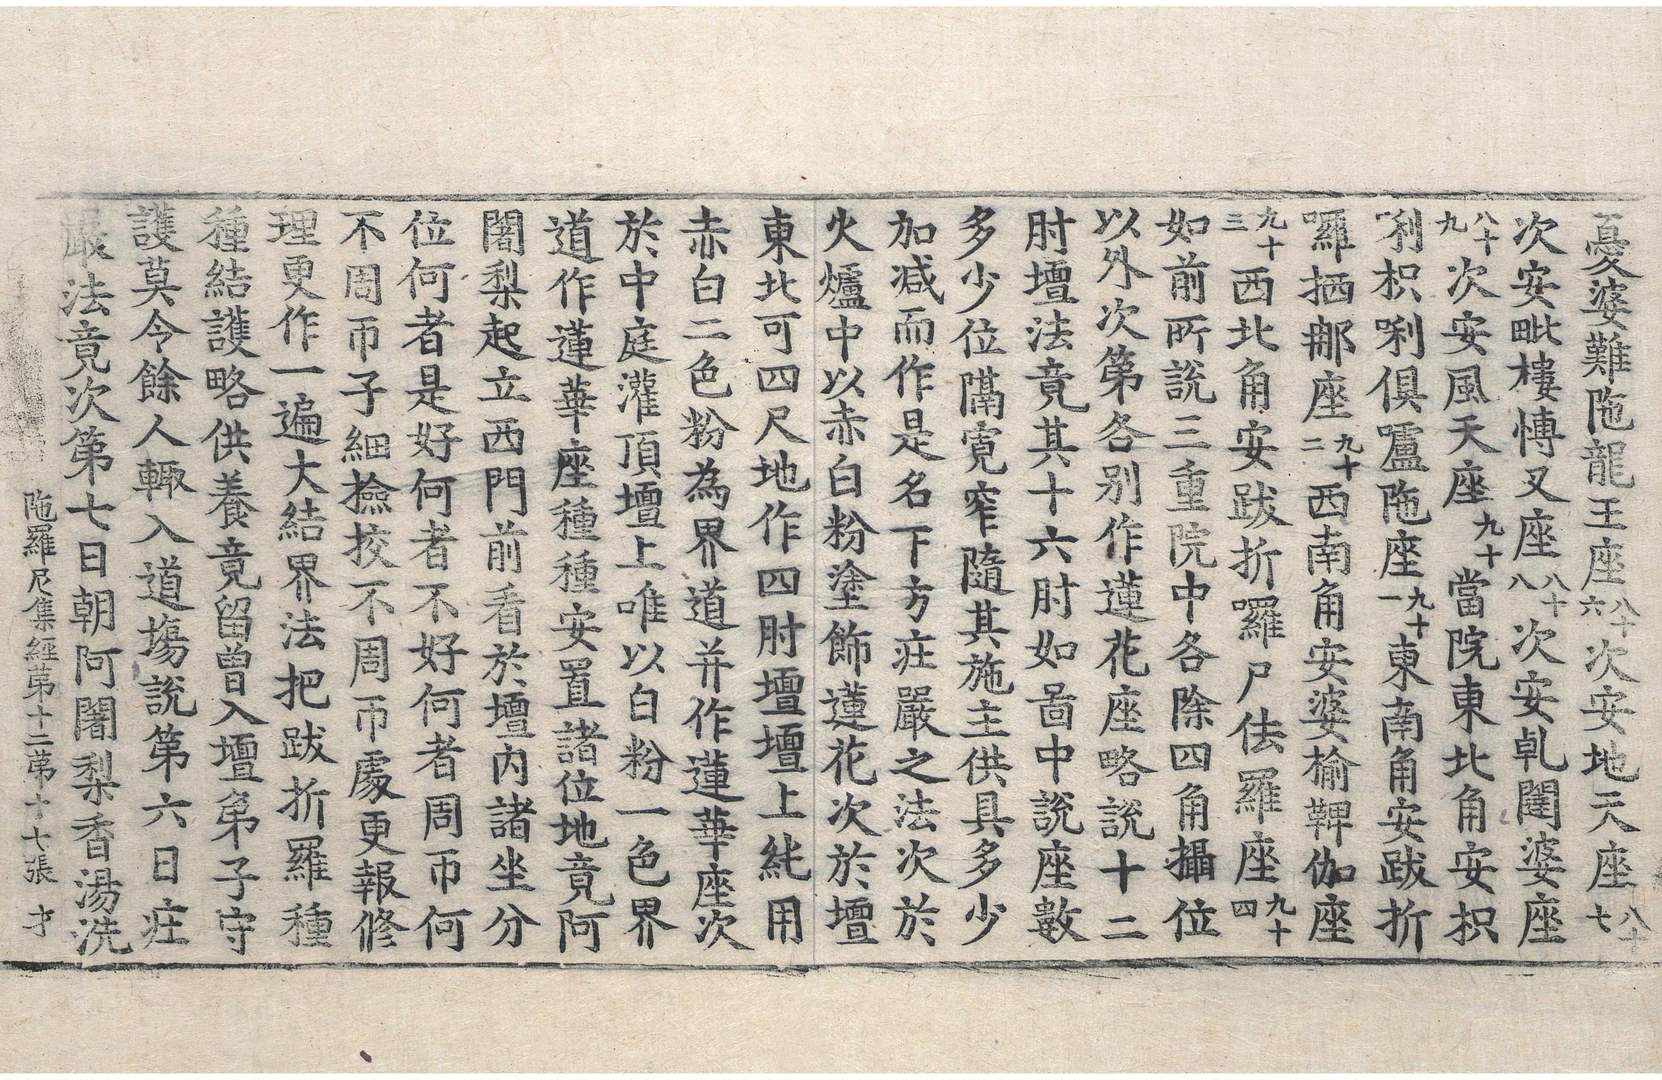 憂婆難陁龍王座八十六次安地天座八十七
次安毗樓愽叉座八十八次安乹闥婆座
八十九次安風天座九十當院東北角安枳
唎枳唎俱嚧陁座九十一東南角安跋折
囉捂那座九十二西南角安婆榆鞞伽座
九十三西北角安跋折羅尸佉羅座九十四
如前所說三重院中各除四角攝位
以外次第各别作蓮花座略說十二
肘壇法竟其十六肘如啚中說座數
多少位隔寛窄隨其施主供具多少
加减而作是名下方庄嚴之法次於
火爐中以赤白粉塗飾蓮花次於壇
東北可四尺地作四肘壇壇上純用
赤白二色粉為界道并作蓮華座次
於中庭灌頂壇上唯以白粉一色界
道作蓮華座種種安置諸位地竟阿
闍梨起立西門前看於壇内諸坐分
位何者是好何者不好何者周帀何
不周帀子細撿挍不周帀處更報修
理更作一遍大結界法把跋折羅種
種結護略供養竟留曾入壇弟子守
護莫令餘人輙入道場說第六日庄
嚴法竟次第七日朝阿闍梨香湯洗
陁羅尼集經第十二第十七張 才